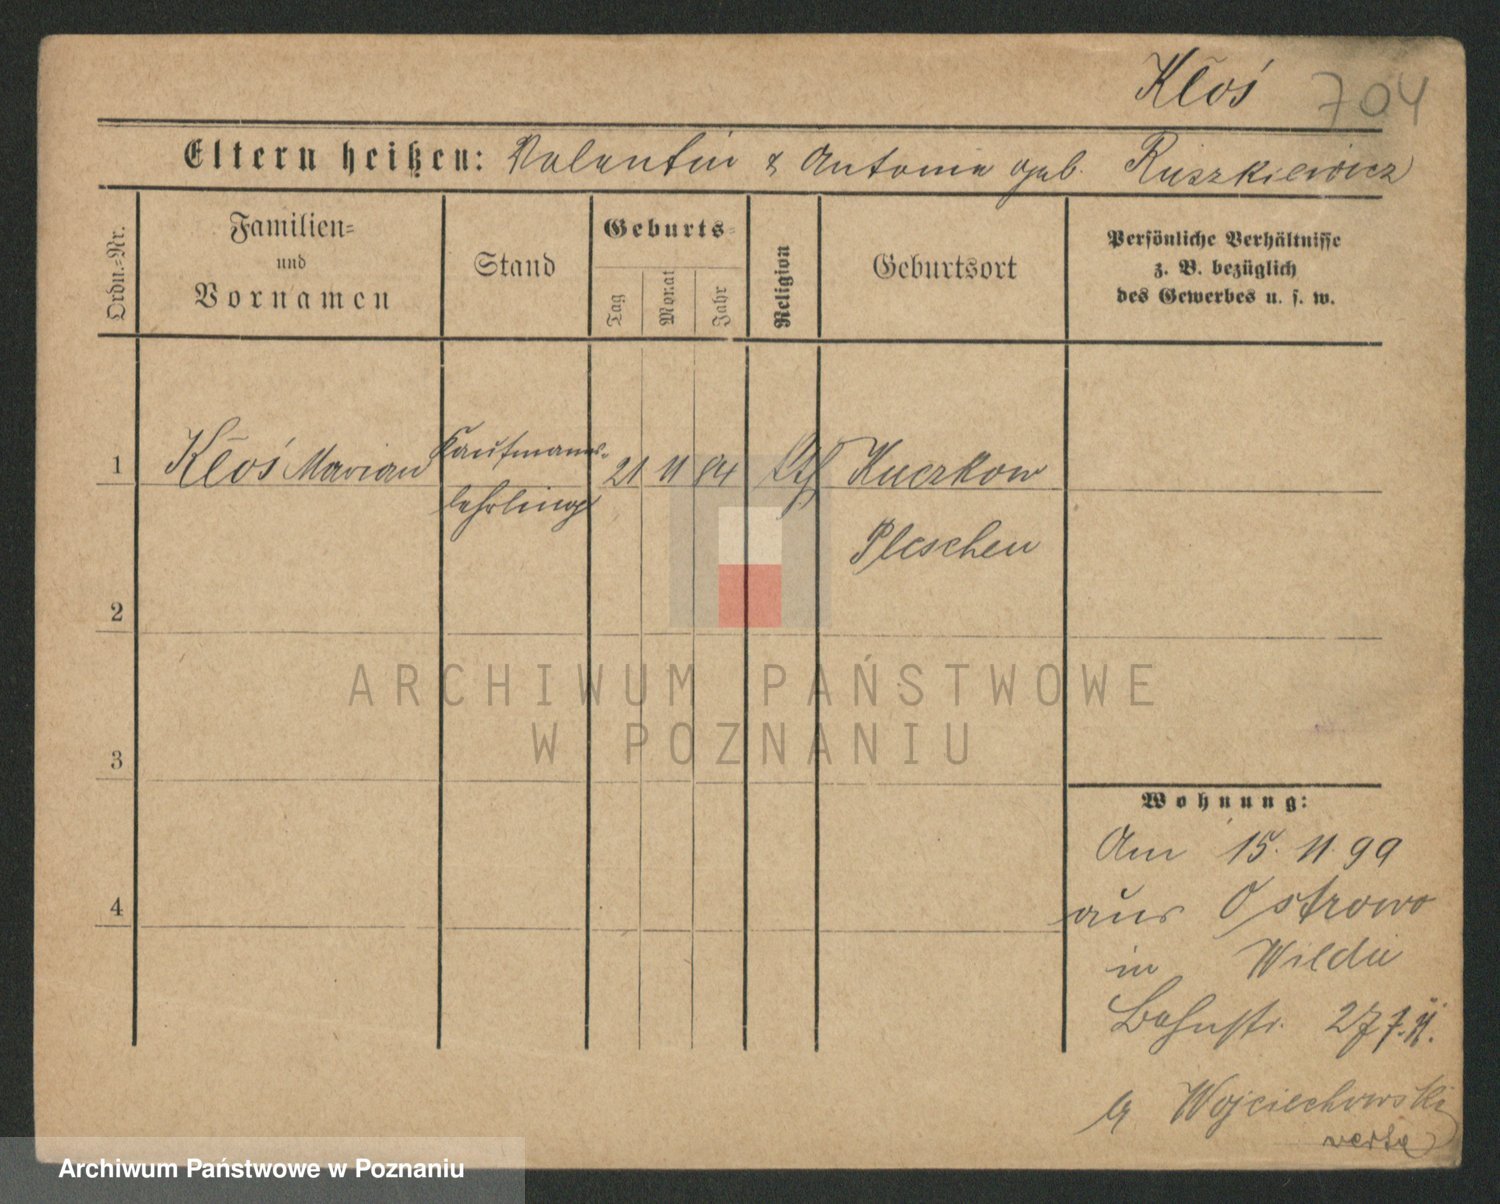 Kłoś 704
Eltern heißen: Valentin & Antonie geb. Ruszkiewicz
Ordn.-Nr.
Familien-
und
Vornamen
Stand
Geburts-
Tag
Monat
Jahr
Religion
Geburtsort
Persönliche Verhältnisse
z. B. bezüglich
des Gewerbes u. s. w.
1 Kłoś Marian Kaufmanns- 21 11 84 Kuczkow
lehrling Pleschen
2
ARCHIWUM PAŃSTWOWE
W POZNANIU
3
Wohnung:
Am 15. 11 99
aus Ostrowo
in Wilda
Bahnstr. 27
4
b/ Wojciechowski
verte
Archiwum Państwowe w Poznaniu